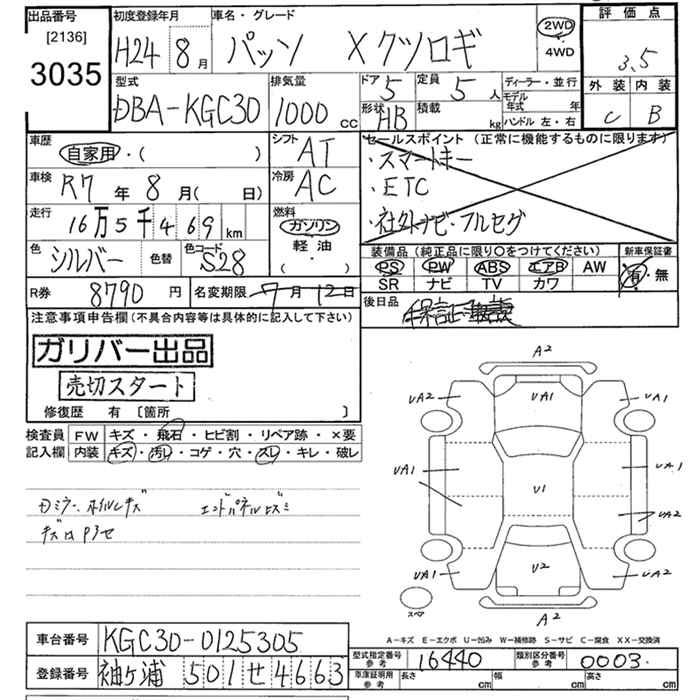 出品番号 [2136] 3035
初度登録年月 H24 8月
車名・グレード パッソ Xクツロギ
2WD 4WD
評価点 3.5
外装 内装
C B
型式 DBA-KGC30
排気量 1000 cc
ドア 5 定員 5人
形状 HB 積載 kg
ディーラー・並行
モデル年式 年
ハンドル 左・右
車歴 自家用・( )
シフト AT
車検 R7年8月( 日)
冷房 AC
走行 16万5千469km
燃料 ガソリン 軽油 ( ・ )
色 シルバー 色替 色コード S28
R券 8790円 名変期限 7月12日
セールスポイント(正常に機能するものに限ります)
・スマートキー
・ETC
・社外ナビ・フルセグ
装備品(純正品に限り○をつけてください)
PS PW ABS エアB AW
SR ナビ TV カワ
新車保証書 有・無
後日品
注意事項申告欄(不具合内容等は具体的に記入して下さい)
ガリバー出品
売切スタート
修復歴 有 [箇所 ]
検査員記入欄
FW キズ・飛石・ヒビ割・リペア跡・×要
内装 キズ・汚レ・コゲ・穴・スレ・キレ・破レ
ミラー、ホイルキズ エンドパネルヒズミ
A2
UA2 UA1 UA1
UA1 U1 UA1
UA2
UA1 U2 UA2
スペア A2
A-キズ E-エクボ U-凹み W-補修跡 S-サビ C-腐食 XX-交換済
車台番号 KGC30-0125305
登録番号 袖ヶ浦 501せ4663
型式指定番号 参考 16440 類別区分番号 参考 0003
車庫証明用 参考 長さ cm 幅 cm 高さ cm